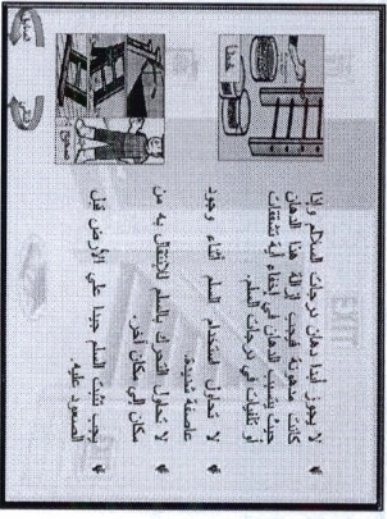 لا يجوز أبدا دهان درجات السلالم وإذا
كانت مدهونة فيجب إزالة هذا الدهان
حيث يتسبب الدهان في إخفاء أية تشققات
أو تلفيات في درجات السلم.
لا تحاول استخدام السلم أثناء وجود
عاصفة شديدة.
لا تحاول التحرك بالسلم للإنتقال به من
مكان إلي مكان آخر.
يجب تثبت السلم جيدا علي الأرض قبل
الصعود عليه.
خطأ
صحيح
EXIT